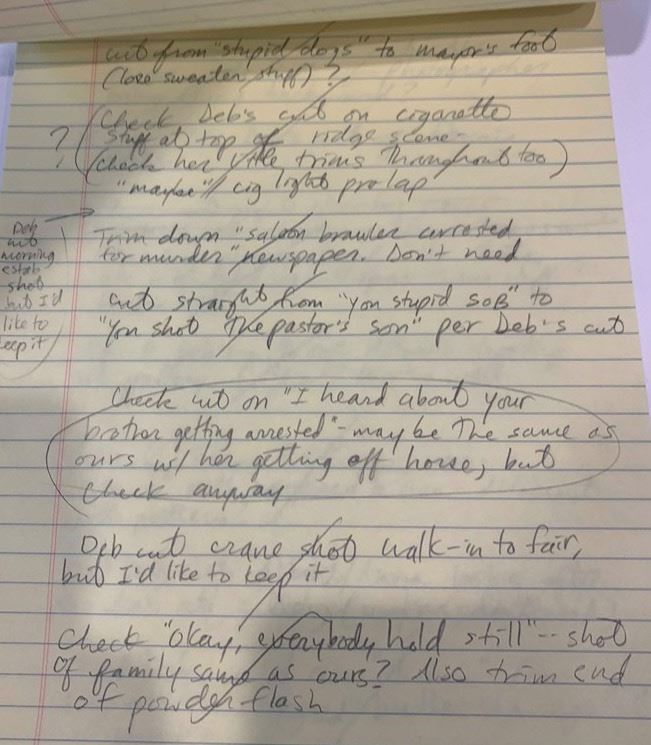 cut from "stupid dogs" to mayor's foot
(lose sweater stuff)?
? (Check Deb's cut on cigarette
stuff at top of ridge scene-
(check her little trims throughout too)
"maybe" cig light prelap
Deb
cut
morning
estab
shot
but I'd
like to
keep it
Trim down "saloon brawler arrested
for murder" newspaper. Don't need
cut straight from "you stupid SOB" to
"You shot the pastor's son" per Deb's cut
Check cut on "I heard about your
brother getting arrested" - may be the same as
ours w/ her getting off horse, but
check anyway
Deb cut crane shot walk-in to fair,
but I'd like to keep it
Check "okay, everybody hold still" -- shot
of family same as ours? Also trim end
of powder flash